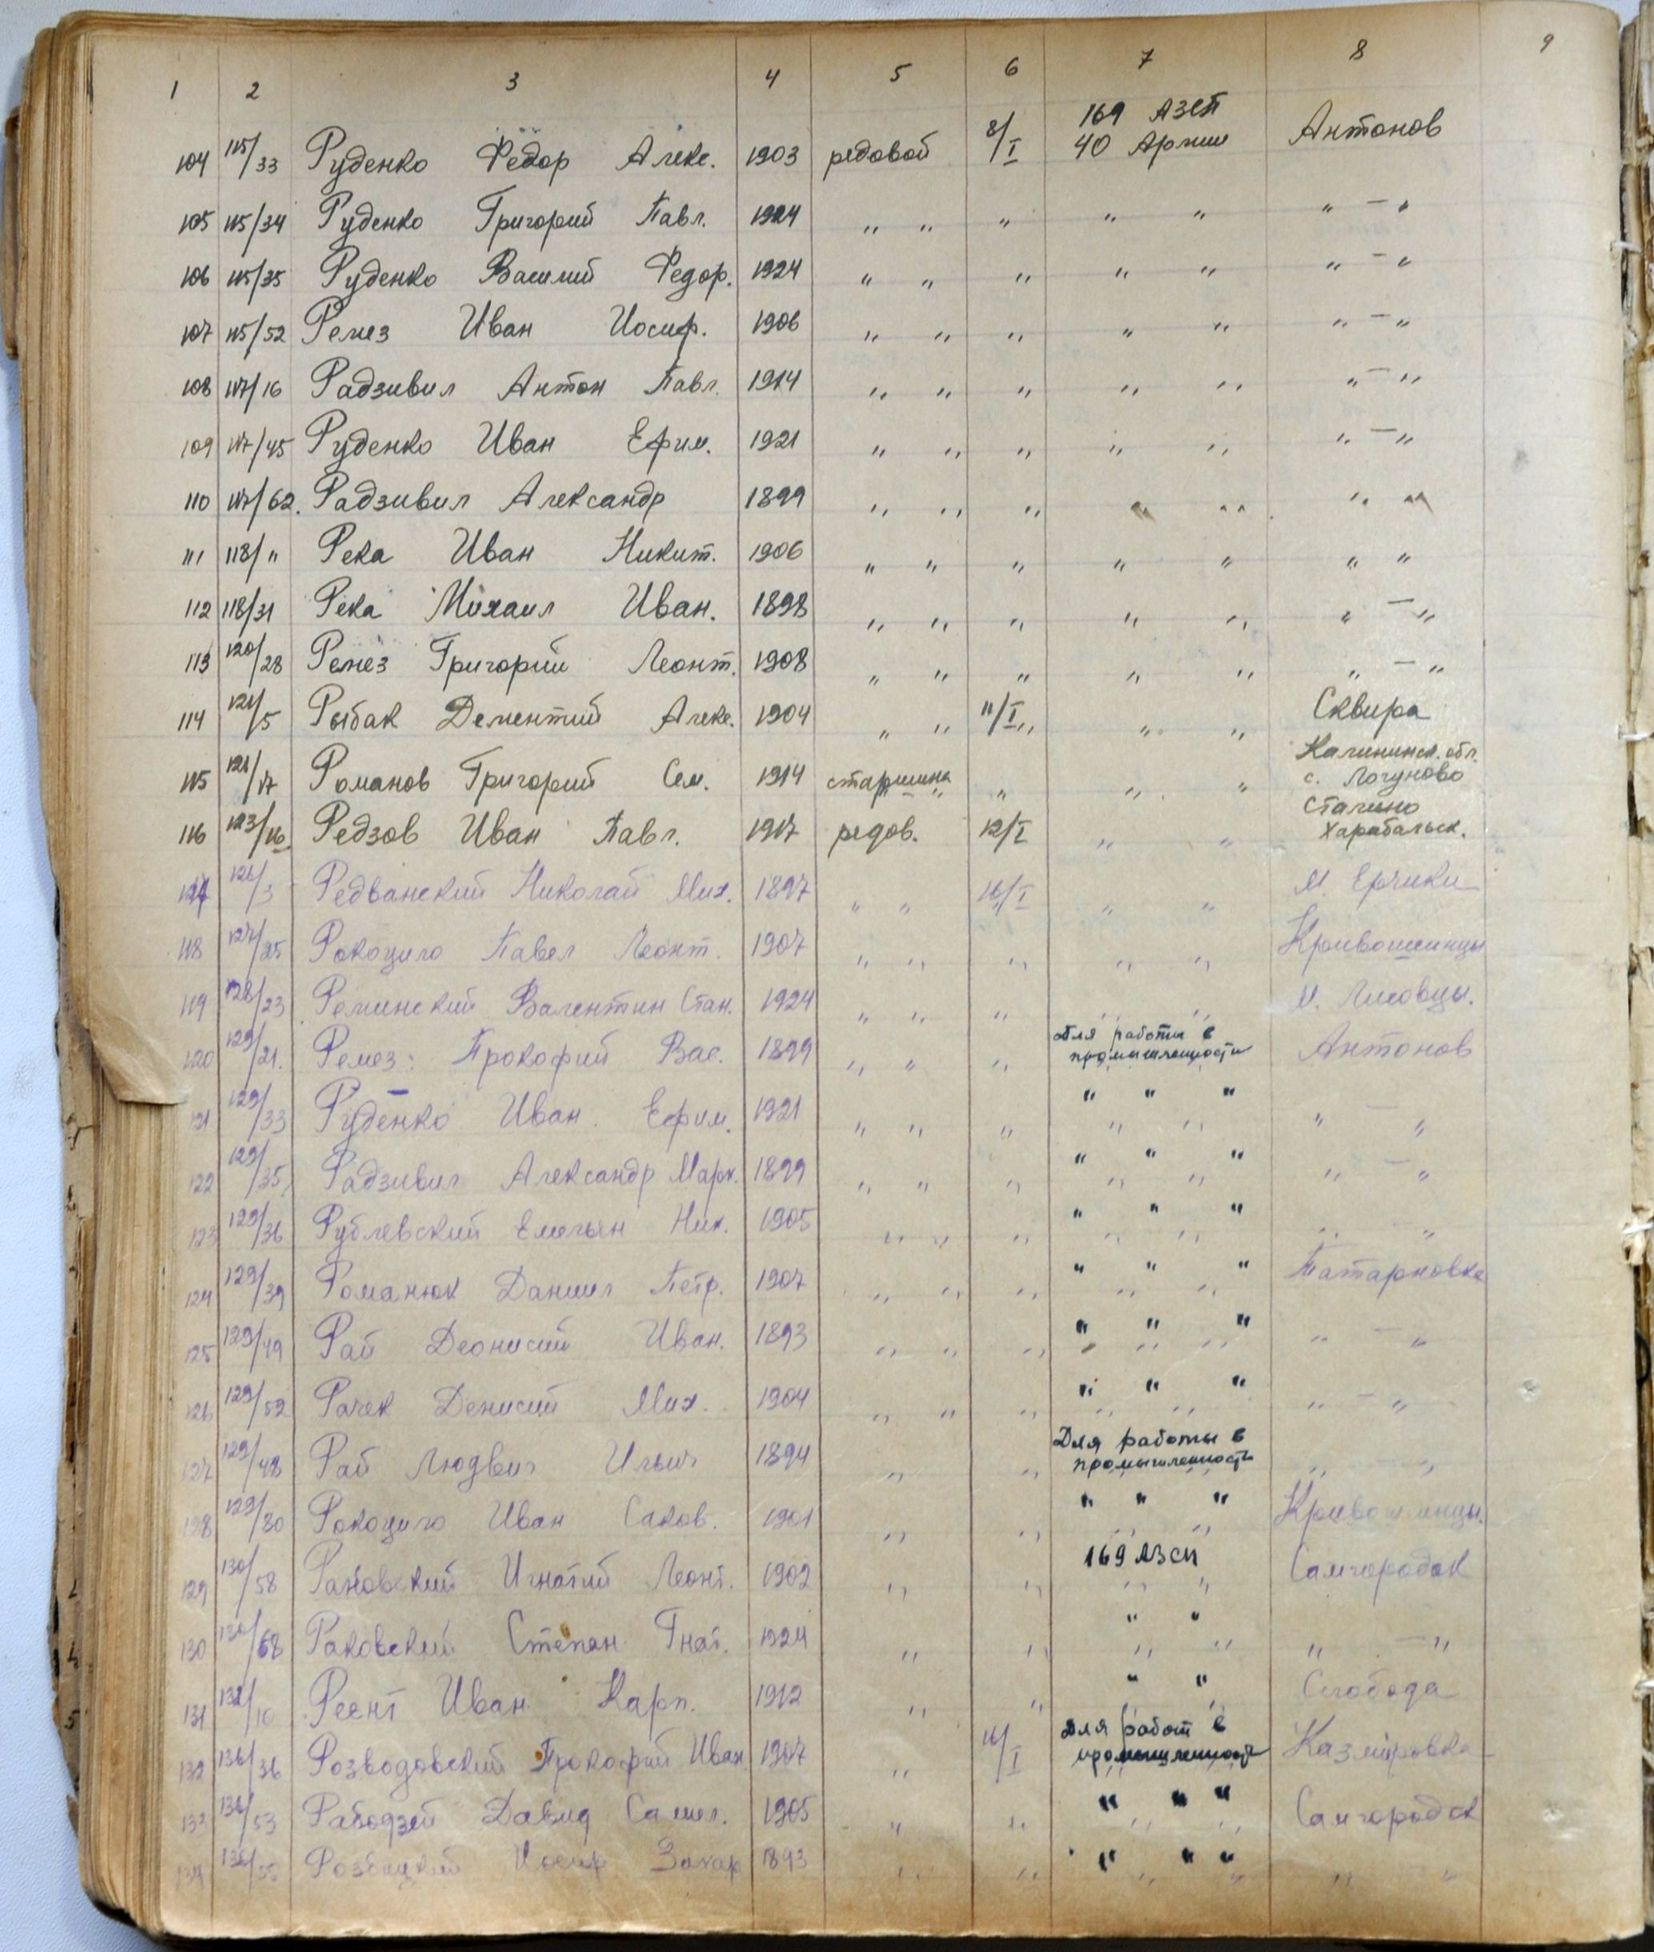 1 2 3 4 5 6 7 8 9
104 115/33 Руденко Федор Алекс. 1903 редовой 8/I 169 АЗСП 40 Армии Антонов
105 115/34 Руденко Григорий Павл. 1924 " " " " " " — "
106 115/35 Руденко Василий Федор. 1924 " " " " " " — "
107 115/52 Ремез Иван Иосиф. 1906 " " " " " " — "
108 117/16 Радзивил Антон Павл. 1914 " " " " " " — "
109 117/45 Руденко Иван Ефим. 1921 " " " " " " — "
110 117/62. Радзивил Александр 1899 " " " " " " "
111 118/11 Река Иван Никит. 1906 " " " " " " "
112 118/31 Река Михаил Иван. 1898 " " " " " " — "
113 120/28 Ремез Григорий Леонт. 1908 " " " " " " — "
114 121/5 Рыбак Дементий Алекс. 1904 " " 11/I " " " Сквира
115 121/17 Романов Григорий Сем. 1914 старшина " " " Калининск. обл. с. Логуново
116 123/16. Редзов Иван Павл. 1917 редов. 12/I " " Сталино Харабальск.
117 126/3 Редванский Николай Мих. 1897 " " 16/I " " М. Ерчики
118 127/25 Рокоцило Павел Леонт. 1907 " " " " " Кривошинцы
119 128/23 Реминский Валентин Стан. 1924 " " " " " М. Лисовцы.
120 129/21. Ремез Прокофий Вас. 1899 " " " Для работы в промышленности Антонов
121 129/33 Руденко Иван Ефим. 1921 " " " " " " " — "
122 129/35 Радзивил Александр Марк. 1899 " " " " " " " — "
123 129/36 Рублевский Емельян Ник. 1905 " " " " " " " "
124 129/39 Романюк Даниил Петр. 1907 " " " " " " Татариновка
125 129/49 Рай Деонисий Иван. 1893 " " " " " " " — "
126 129/52 Рачек Денисий Мих. 1904 " " " " " " " — "
127 129/48 Рай Людвиг Ильич 1894 " " Для работы в промышленность " — "
128 129/80 Рокоцило Иван Саков. 1901 " " " " " Кривошинцы.
129 130/58 Раковский Игнатий Леонт. 1902 " " 169 АЗСП Самгородок
130 130/68 Раковский Степан Гнат. 1924 " " " " " — "
131 132/10 Реент Иван Карп. 1912 " " " " Слобода
132 136/36 Розводовский Прокофий Иван 1907 " 16/I Для работ в промышленност Казмировка
133 136/53 Рабодзей Давид Самил. 1905 " " " " " Самгородск
134 136/55 Иосиф Захар 1893 " " " " " " "